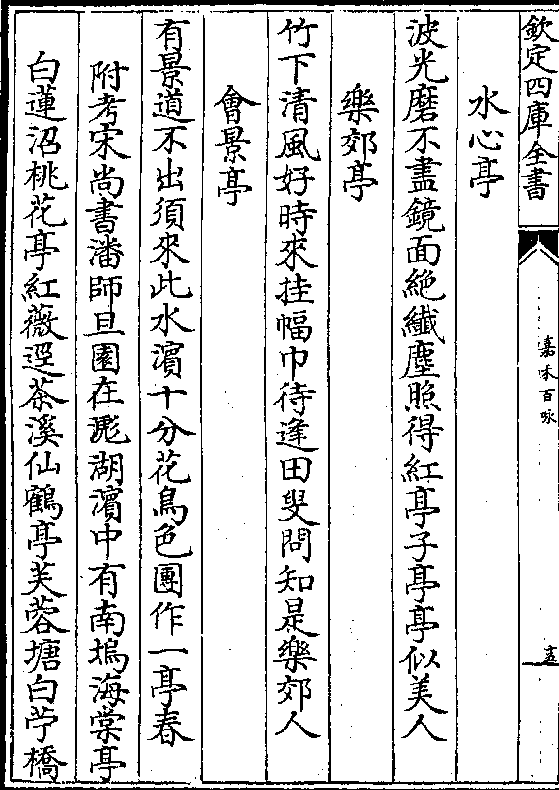 欽定四庫全書
嘉禾百咏
十五
水心亭
波光磨不盡鏡面絶纎塵照得紅亭子亭亭似美人
樂郊亭
竹下清風好時來挂幅巾待逢田叟問知是樂郊人
會景亭
有景道不出須來此水濵十分花鳥色團作一亭春
附考宋尚書潘師旦園在滮湖濵中有南塢海棠亭
白蓮沼桃花亭紅薇逕茶溪仙鶴亭芙蓉塘白苧橋